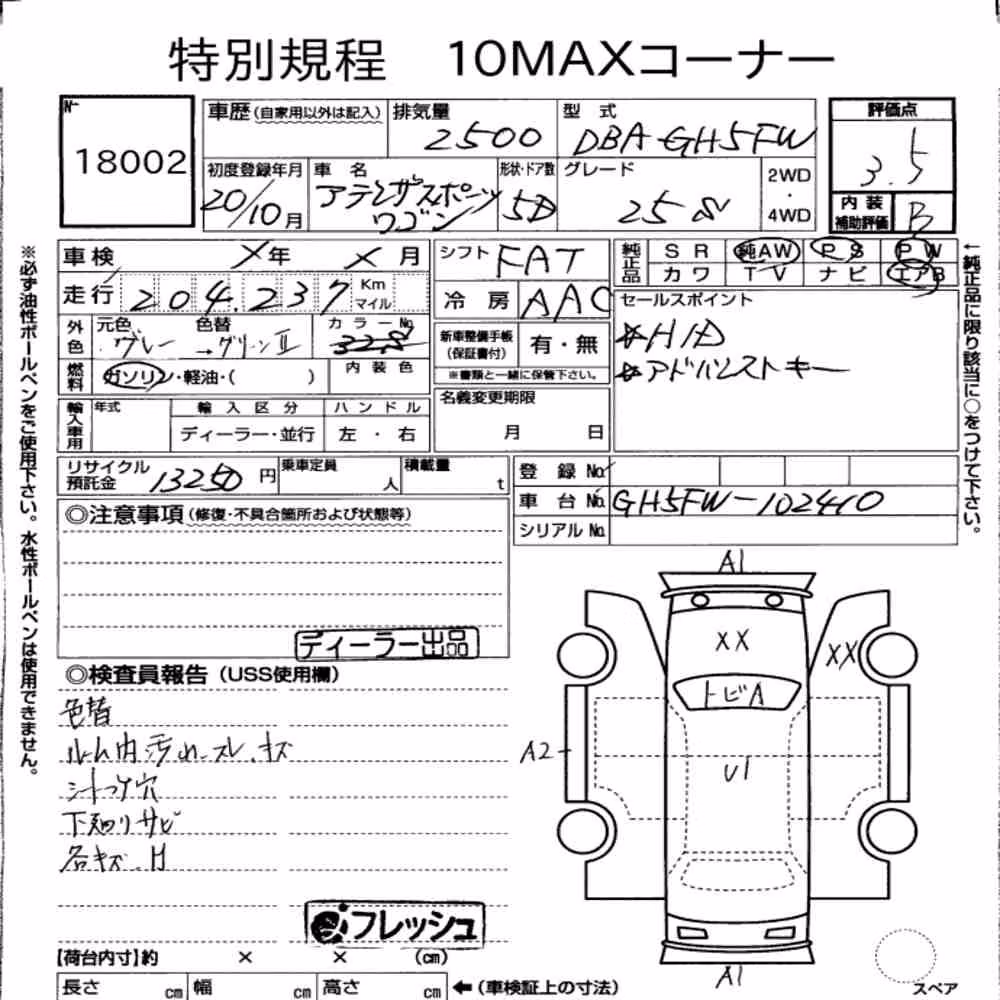 特別規程 10MAXコーナー
No
18002
車歴(自家用以外は記入)
排気量
2500
型式
DBA-GH5FW
評価点
3.5
初度登録年月
20/10月
車名
アテンザスポーツ
ワゴン
形状・ドア数
5D
グレード
25S
2WD
・
4WD
内装
補助評価
B
車検 ×年 ×月
シフト FAT
純正品
SR 純AW PS PW
カワ TV ナビ エアB
走行 204,237 Km
マイル
冷房 AAC
セールスポイント
*HID
*アドバンストキー
外色
元色 グレー
色替 →グリーンⅡ
カラーNo.
32S
新車整備手帳
(保証書付)
有・無
※書類と一緒に保管下さい。
燃料
ガソリン・軽油・( )
内装色
名義変更期限
月 日
輸入車用
年式
輸入区分
ハンドル
ディーラー・並行
左・右
リサイクル
預託金
13250円
乗車定員
人
積載量
t
登録No.
車台No. GH5FW-102410
シリアルNo.
◎注意事項(修復・不具合箇所および状態等)
ディーラー出品
◎検査員報告(USS使用欄)
色替
ルーム内汚れ、スレ、キズ
シートコゲ穴
下廻りサビ
各キズ、H
フレッシュ
【荷台内寸】約 × × (cm)
長さ cm 幅 cm 高さ cm ←(車検証上の寸法)
A1
XX
XX
トビA
A2
U1
A1
スペア
※必ず油性ボールペンをご使用下さい。水性ボールペンは使用できません。
←純正品に限り該当に○をつけて下さい。